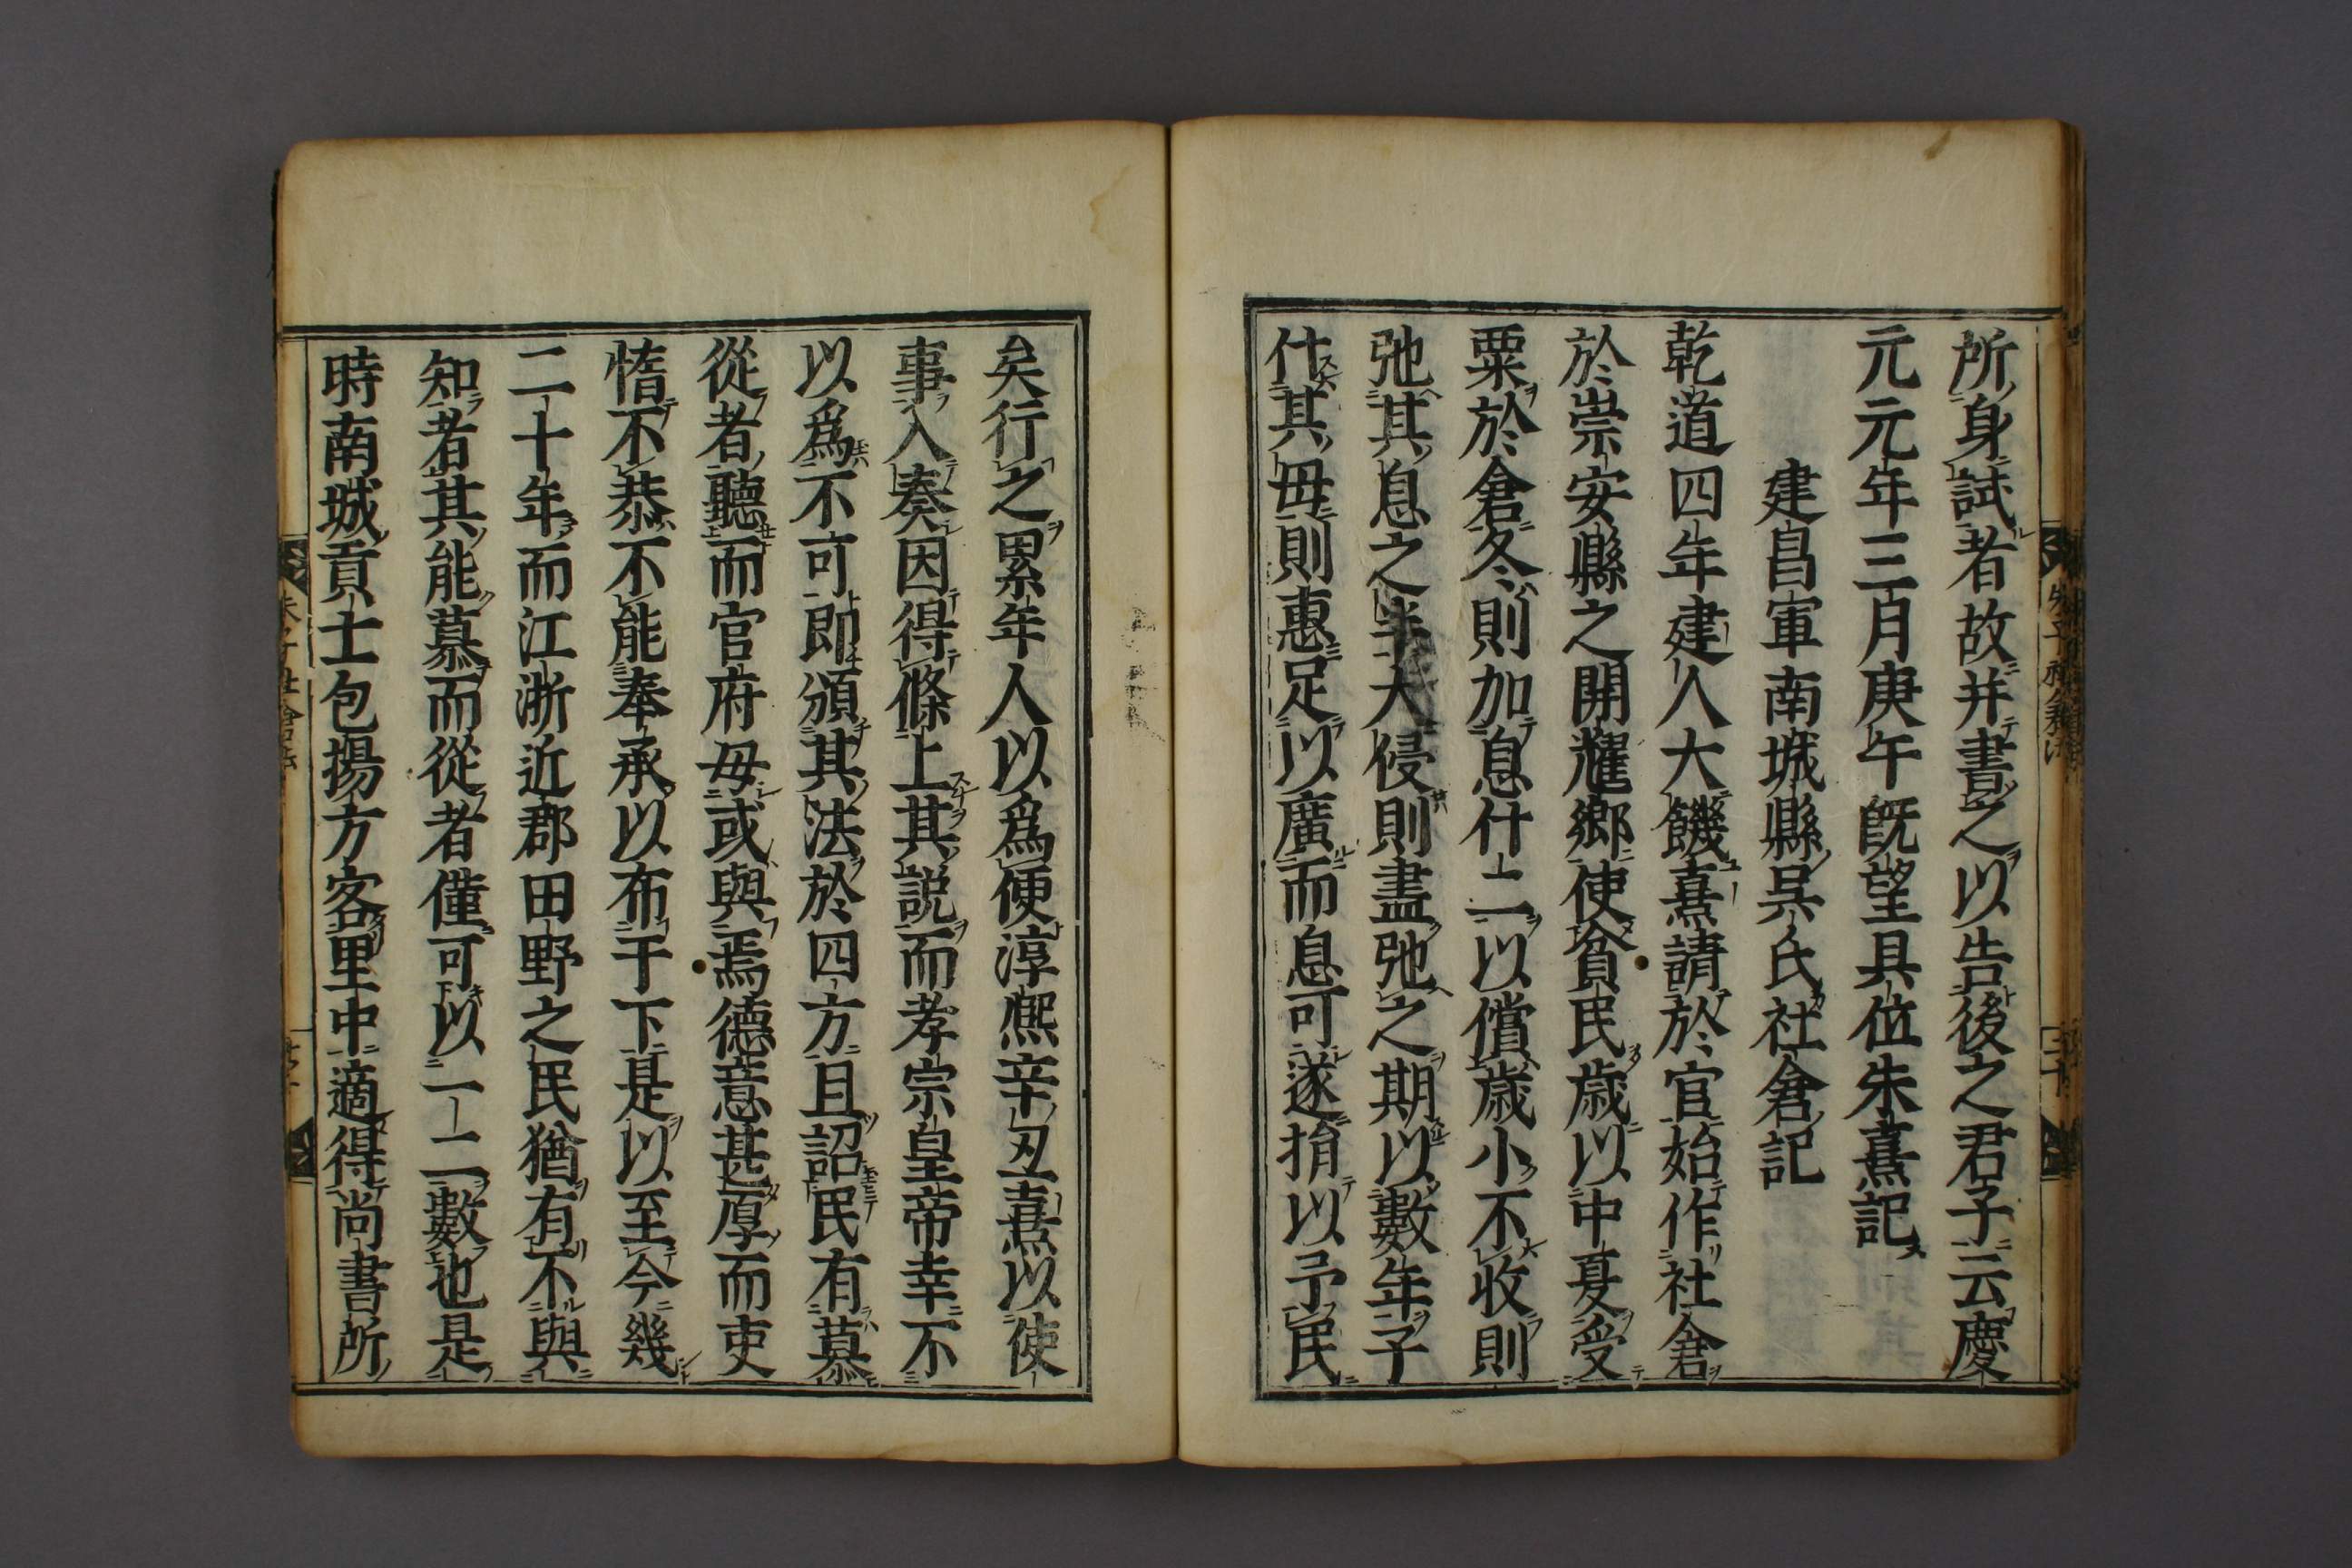 所身試者故并書之以告後之君子云慶
元元年三月庚午既望具位朱熹記
建昌軍南城縣呉氏社倉記
乾道四年建人大饑熹請於官始作社倉
於崇安縣之開耀郷使貧民歳以中夏受
粟於倉冬則加息什二以償歳小不收則
弛其息之半大侵則盡弛之期以數年子
什其毋則惠足以廣而息可遂捐以予民
矣行之累年人以爲便淳熈辛丑熹以使
事入奏因得條上其説而孝宗皇帝幸不
以爲不可即頒其法於四方且詔民有慕
從者聽而官府毋或與焉德意甚厚而吏
惰不恭不能奉承以布于下是以至今幾
二十年而江浙近郡田野之民猶有不與
知者其能慕而從者僅可以一二數也是
時南城貢士包揚方客里中適得尚書所
朱子社倉法